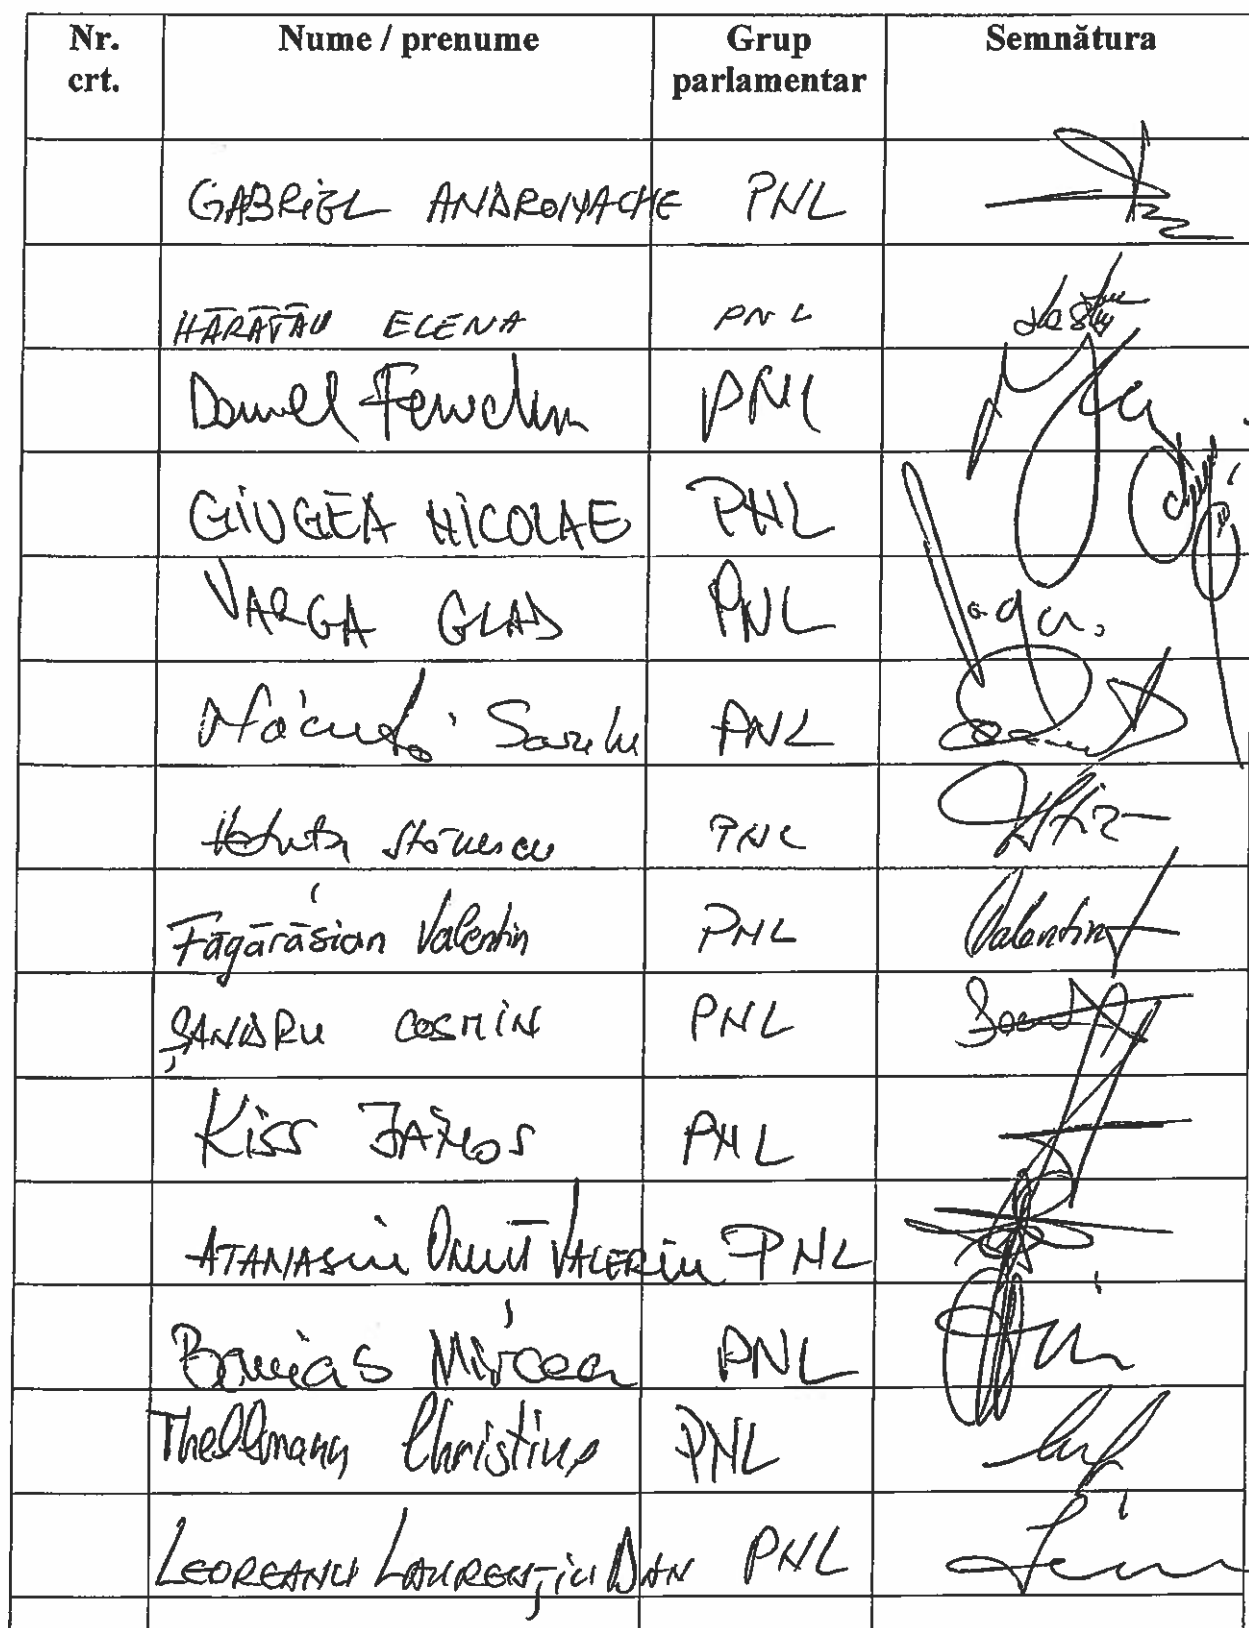 Nr. crt. Nume / prenume Grup parlamentar Semnătura
GABRIEL ANDRONACHE PNL
HĂRĂTĂU ELENA PNL
Daniel Fenechiu PNL
GIUGEA NICOLAE PNL
VARGA GLAD PNL
PNL
Stănescu PNL
Făgărășian Valentin PNL Valentin
ȘANDRU COSMIN PNL
Kiss JÁNOS PNL
ATANASIU Onuț VALERIU PNL
Banias Mircea PNL
Thellmann Christine PNL
LEOREANU LAURENȚIU DAN PNL